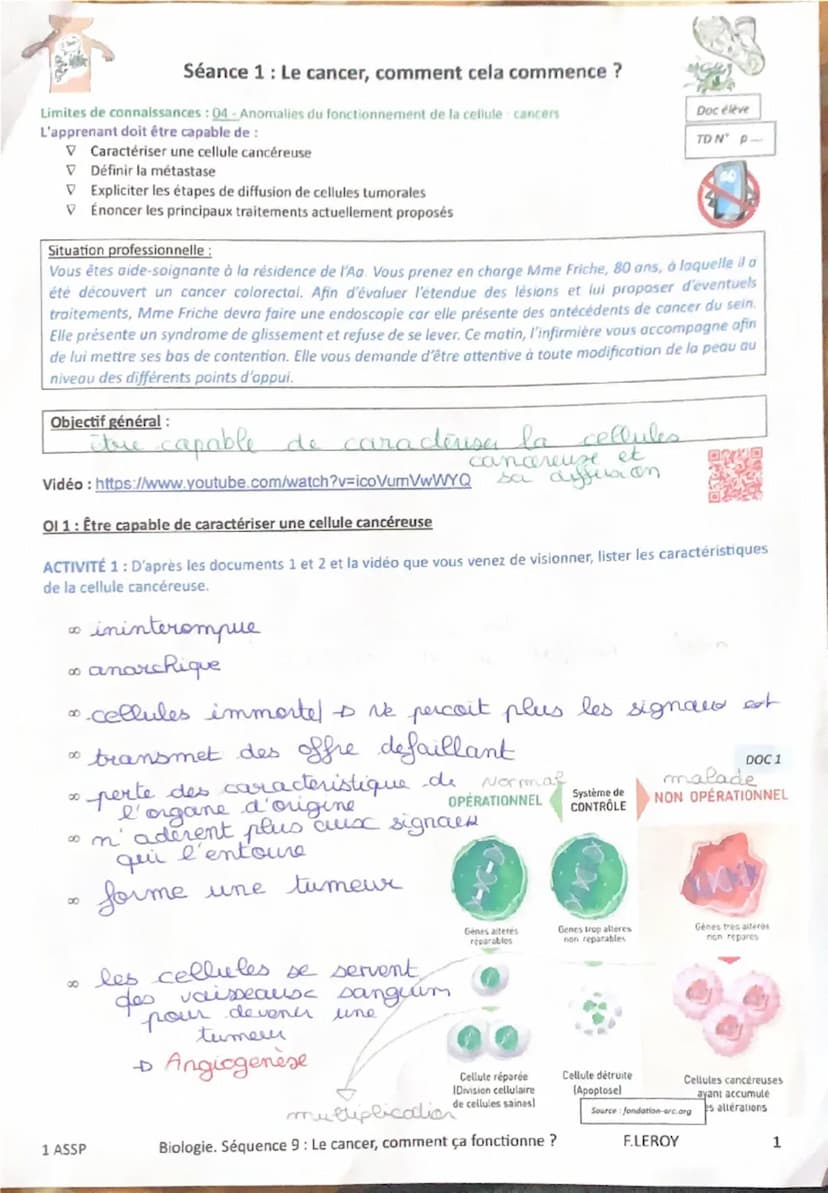 Séance 1 : Le cancer, comment cela commence ?
Limites de connaissances : 04 - Anomalies du fonctionnement de la cellule : cancers
Doc élève
L'apprenant doit être capable de :
TD N° p
∇ Caractériser une cellule cancéreuse
∇ Définir la métastase
∇ Expliciter les étapes de diffusion de cellules tumorales
∇ Énoncer les principaux traitements actuellement proposés
Situation professionnelle :
Vous êtes aide-soignante à la résidence de l'Aa. Vous prenez en charge Mme Friche, 80 ans, à laquelle il a
été découvert un cancer colorectal. Afin d'évaluer l'étendue des lésions et lui proposer d'éventuels
traitements, Mme Friche devra faire une endoscopie car elle présente des antécédents de cancer du sein.
Elle présente un syndrome de glissement et refuse de se lever. Ce matin, l'infirmière vous accompagne afin
de lui mettre ses bas de contention. Elle vous demande d'être attentive à toute modification de la peau au
niveau des différents points d'appui.
Objectif général :
être capable de caractériser la cellules
cancéreuse et
sa diffusion
Vidéo : https://www.youtube.com/watch?v=icoVumVwWYQ
OI 1 : Être capable de caractériser une cellule cancéreuse
ACTIVITÉ 1 : D'après les documents 1 et 2 et la vidéo que vous venez de visionner, lister les caractéristiques
de la cellule cancéreuse.
∞ ininterompue
∞ anarchique
∞ cellules immortel → Ne percoit plus les signaux est
∞ transmet des offre defaillant
∞ perte des caracteristique de
l'organe d'origine
∞ n'adèrent plus aux signaux
qui l'entoure
∞ forme une tumeur
∞ les cellules se servent
des vaisseaux sanguin
pour devenir une
tumeur
→ Angiogenèse
DOC 1
Normal
malade
OPÉRATIONNEL
Système de
CONTRÔLE
NON OPÉRATIONNEL
Gènes altérés
réparables
Gènes trop altérés
non réparables
Gènes très altérés
non réparés
Cellule réparée
(Division cellulaire
de cellules saines)
Cellule détruite
(Apoptose)
Cellules cancéreuses
ayant accumulé
altérations
multiplication
Source : fondation-arc.org
1 ASSP
Biologie. Séquence 9 : Le cancer, comment ça fonctionne ?
F.LEROY
1